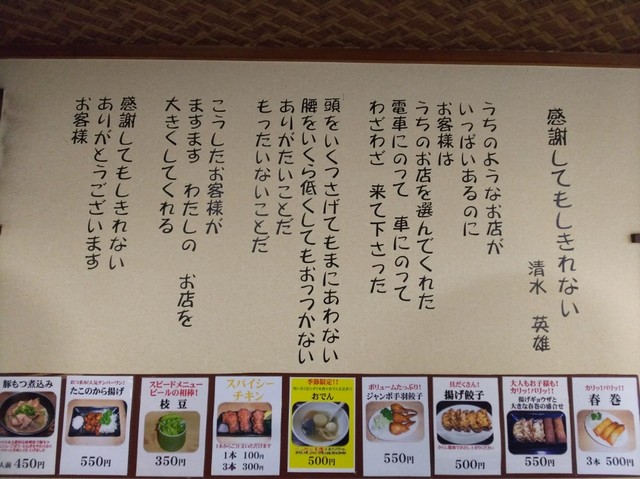 感謝してもしきれない
清水 英雄
うちのようなお店が
いっぱいあるのに
お客様は
うちのお店を選んでくれた
電車にのって 車にのって
わざわざ 来て下さった
頭をいくつさげてもまにあわない
腰をいくら低くしてもおっつかない
ありがたいことだ
もったいないことだ
こうしたお客様が
ますます わたしの お店を
大きくしてくれる
感謝してもしきれない
ありがとうございます
お客様
豚もつ煮込み
450円
たこのから揚げ
550円
スピードメニュー
ビールの相棒!
枝豆
350円
スパイシー
チキン
1本 100円
3本 300円
季節限定!!
おでん
500円
ボリュームたっぷり!
ジャンボ手羽餃子
550円
具だくさん!
揚げ餃子
500円
大人もお子様も!
カリッ!パリッ!
揚げギョウザと
大きな春巻の盛合せ
550円
カリッ!パリッ!!
春巻
3本 500円